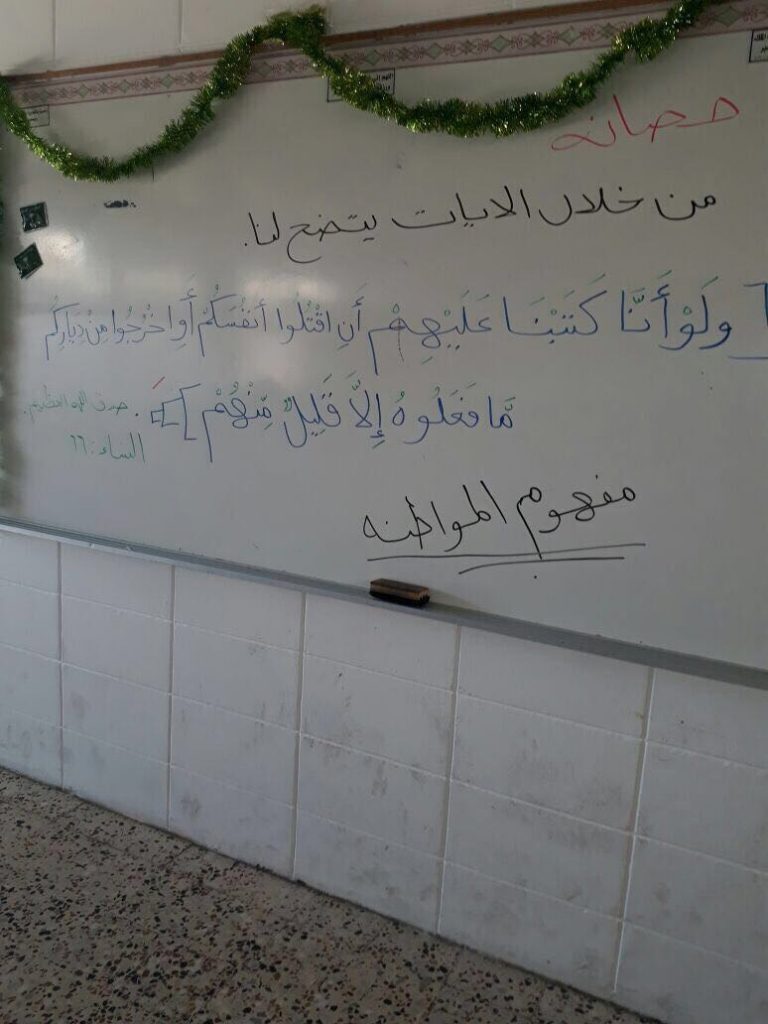 حصانه
من خلال الايات يتضح لنا.
[ولَوْ أَنَّا كَتَبْنَا عَلَيْهِمْ أَنِ اقْتُلُوا أَنفُسَكُمْ أَوِ اخْرُجُوا مِنْ دِيَارِكُم
مَّا فَعَلُوهُ إِلاَّ قَلِيلٌ مِّنْهُمْ]
صدق الله العظيم.
النساء: ٦٦
مفهوم المواطنه